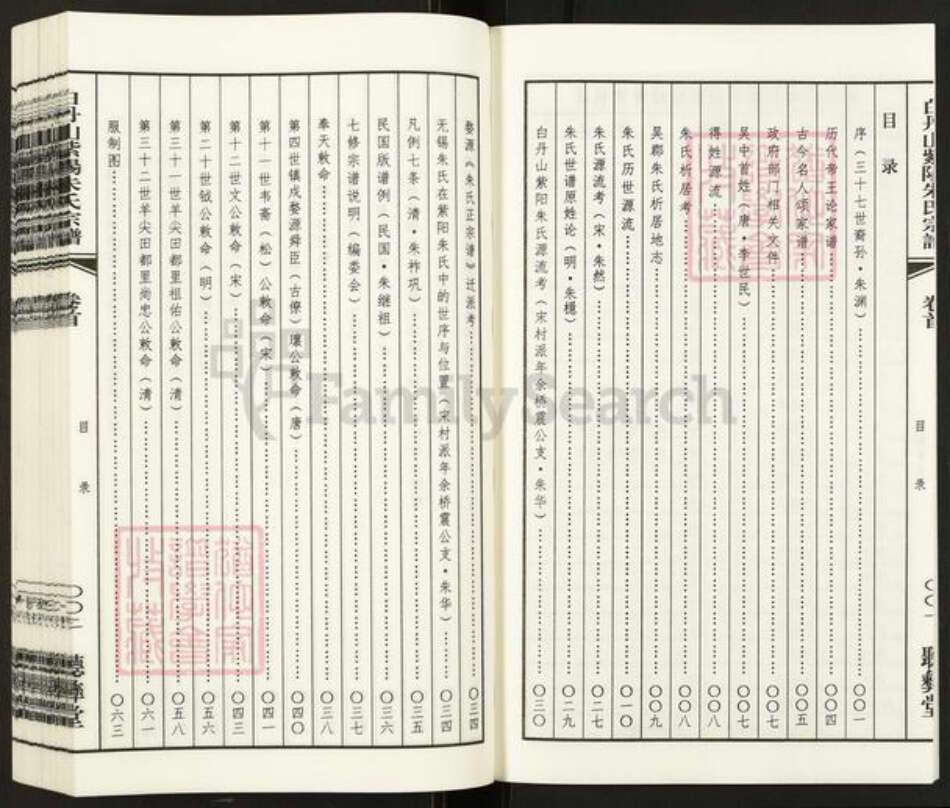 白丹山紫阳朱氏宗谱
卷首
目
录
目录
序（三十七世裔孙·朱渊）〇〇一
历代帝王论家谱〇〇四
古今名人颂家谱〇〇五
政府部门相关文件〇〇七
吴中首姓（唐·李世民）〇〇七
得姓源流〇〇八
朱氏析居考〇〇八
吴郡朱氏析居地志〇〇九
朱氏历世源流〇一〇
朱氏源流考（宋·朱熬）〇二七
朱氏世谱原姓论（明·朱穗）〇二九
白丹山紫阳朱氏源流考（宋村派年余桥震公支·朱华）〇三〇
婺源《朱氏正宗谱》迁派考〇三四
无锡朱氏在紫阳朱氏中的世序与位置（宋村派年余桥震公支·朱华）〇三四
凡例七条（清·朱祚巩）〇三五
民国版谱例（民国·朱继祖）〇三六
七修宗谱说明（编委会）〇三七
奉天敕命〇三八
第四世镇戍婺源舜臣（古僚）瓌公敕命（唐）〇四〇
第十一世韦斋（松）公敕命（宋）〇四一
第十二世文公敕命（宋）〇四三
第二十世钺公敕命（明）〇五六
第三十一世羊尖田都里祖佑公敕命（清）〇五八
第三十二世羊尖田都里尚忠公敕命（清）〇六一
服制图〇六三
目
录
FamilySearch